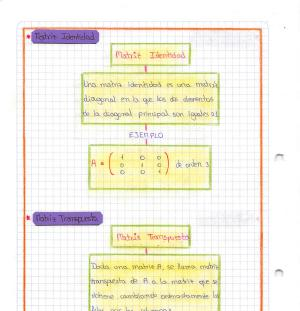 Matriz Identidad
Matriz Identidad
Una matriz identidad es una matriz
diagonal en la que los de elementos
de la diagonal principal son iguales a 1
EJEMPLO
1 0 0
A = 0 1 0 de orden 3
0 0 1
Matriz Transpuesta
Matriz Transpuesta
Dada una matriz A, se llama matriz
transpuesta de A a la matriz que se
obtiene cambiando ordenadamente la
filas por las columnas